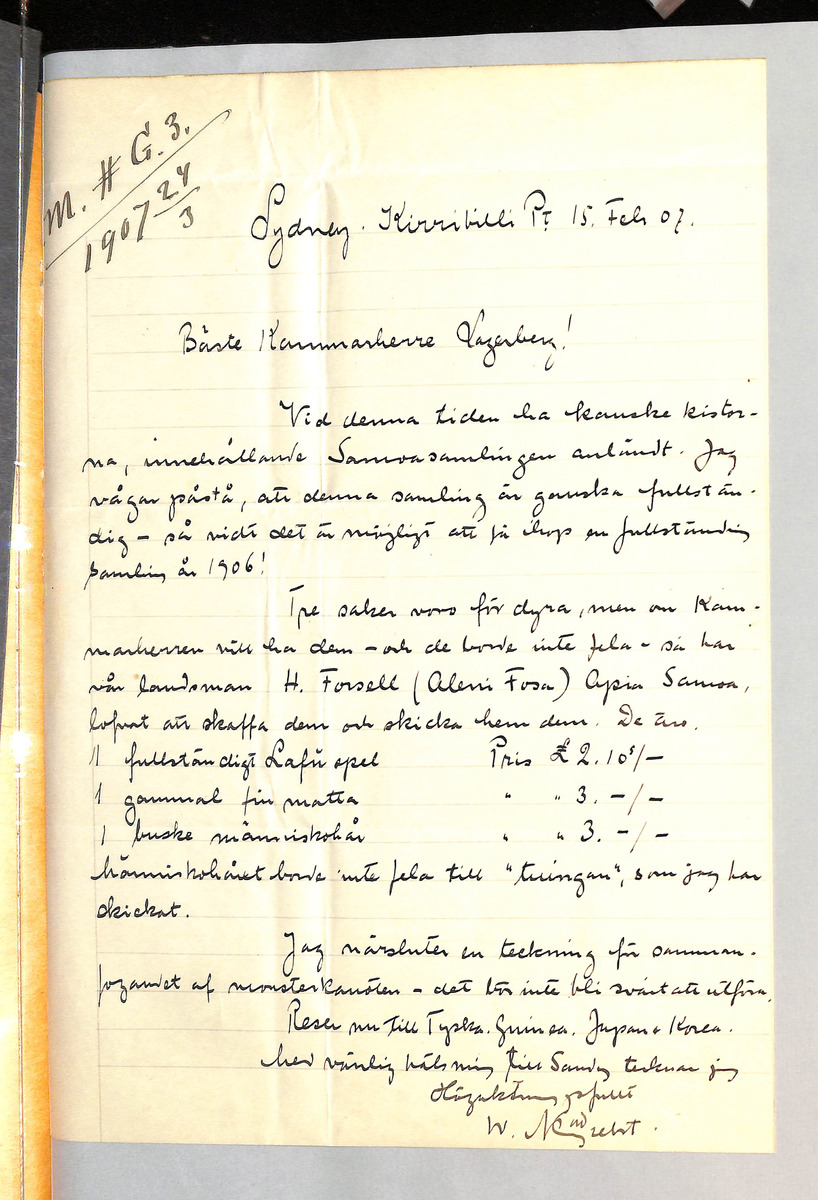 M. # G. 3.
1907 24/3
Sydney. Kirribilli Pt. 15. Feb 07.
Bäste Kammarherre Lagerberg!
Vid denna tiden ha kanske kistor-
na, innehållande Samoasamlingen anländt. Jag
vågar påstå, att denna samling är ganska fullstän-
dig – så vidt det är möjligt att få ihop en fullständig
samling år 1906!
Tre saker voro för dyra, men om Kam-
marherren vill ha dem – och de borde inte fela – så har
vår landsman H. Forsell (Aleni Fosa) Apia Samoa,
lofvat att skaffa dem och skicka hem dem. De äro.
1 fullständigt Lafu spel Pris £ 2.10s/–
1 gammal fin matta " " 3. –/–
1 buske människohår " " 3. –/–
Människohåret borde inte fela till "tuingan", som jag har
skickat.
Jag närsluter en teckning för samman-
fogandet af monsterkanoten – det bör inte bli svårt att utföra.
Reser nu till Tyska. Guinea. Japan & Korea.
Med vänlig hälsning till tecknar jag
Högaktningsfullt
W.